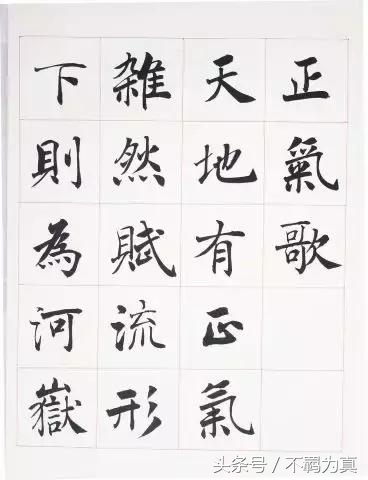 正氣歌
天地有正氣
雜然賦流形
下則為河嶽
头条号 / 不羁为真